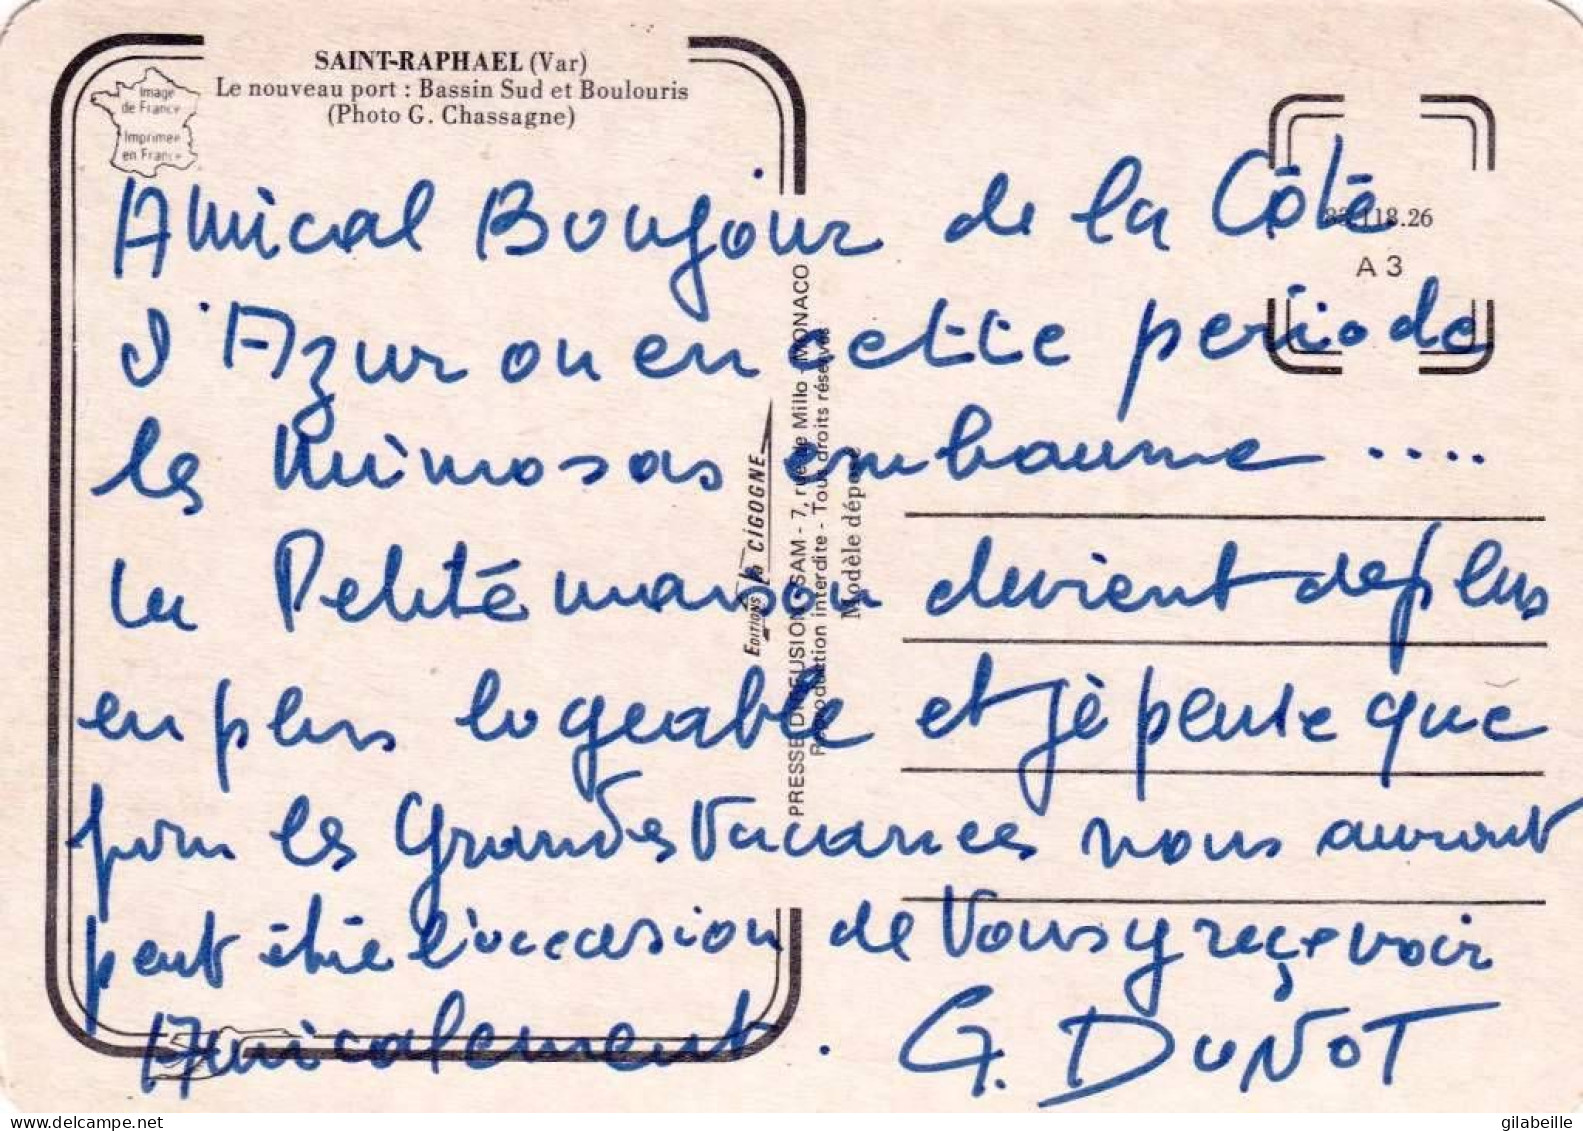 SAINT-RAPHAEL (Var)
Le nouveau port : Bassin Sud et Boulouris
(Photo G. Chassagne)
Image
de France
Imprimée
en France
118.26
A 3
Amical Boujour de la Côte
d'Azur ou en cette periode
les Mimosas embaume ....
la Petite maison devient de plus
en plus logeable et je pense que
pour les Grandes Vacances nous auront
peut être l'occasion de Vous y reçevoir
Amicalement. G. DUNOT
EDITIONS La CIGOGNE
PRESSE DIFFUSION SAM - 7, rue de Millo - MONACO
Reproduction interdite - Tous droits réservés
Modèle déposé
gilabeille